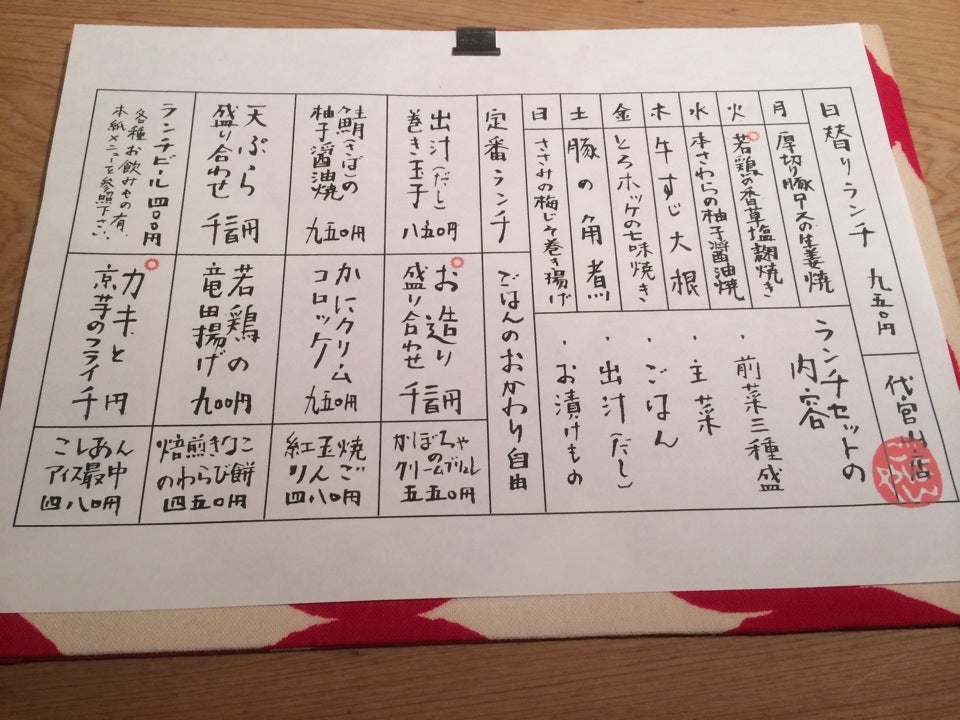 日替りランチ 九五〇円
代官山店
月 厚切り豚ロースの生姜焼
火 若鶏の香草塩麹焼き
水 本さわらの柚子醤油焼
木 牛すじ大根
金 とろホッケの七味焼き
土 豚の角煮
日 ささみの梅じそ巻き揚げ
ランチセットの
内容
・前菜三種盛
・主菜
・ごはん
・出汁(だし)
・お漬けもの
定番ランチ
ごはんのおかわり自由
出汁(だし)
巻き玉子
八五〇円
お造り
盛り合わせ
千百円
かぼちゃ
の
クリームブリュレ
五五〇円
鯖(さば)の
柚子醤油焼
九五〇円
かにクリーム
コロッケ
九五〇円
紅玉焼
りんご
四八〇円
天ぷら
盛り合わせ
千百円
若鶏の
竜田揚げ
九〇〇円
焙煎きなこ
のわらび餅
四五〇円
ランチビール 四〇〇円
各種お飲みもの有、
本紙メニューを参照下さい。
カキと
京芋のフライ
千円
こしあん
アイス最中
四八〇円